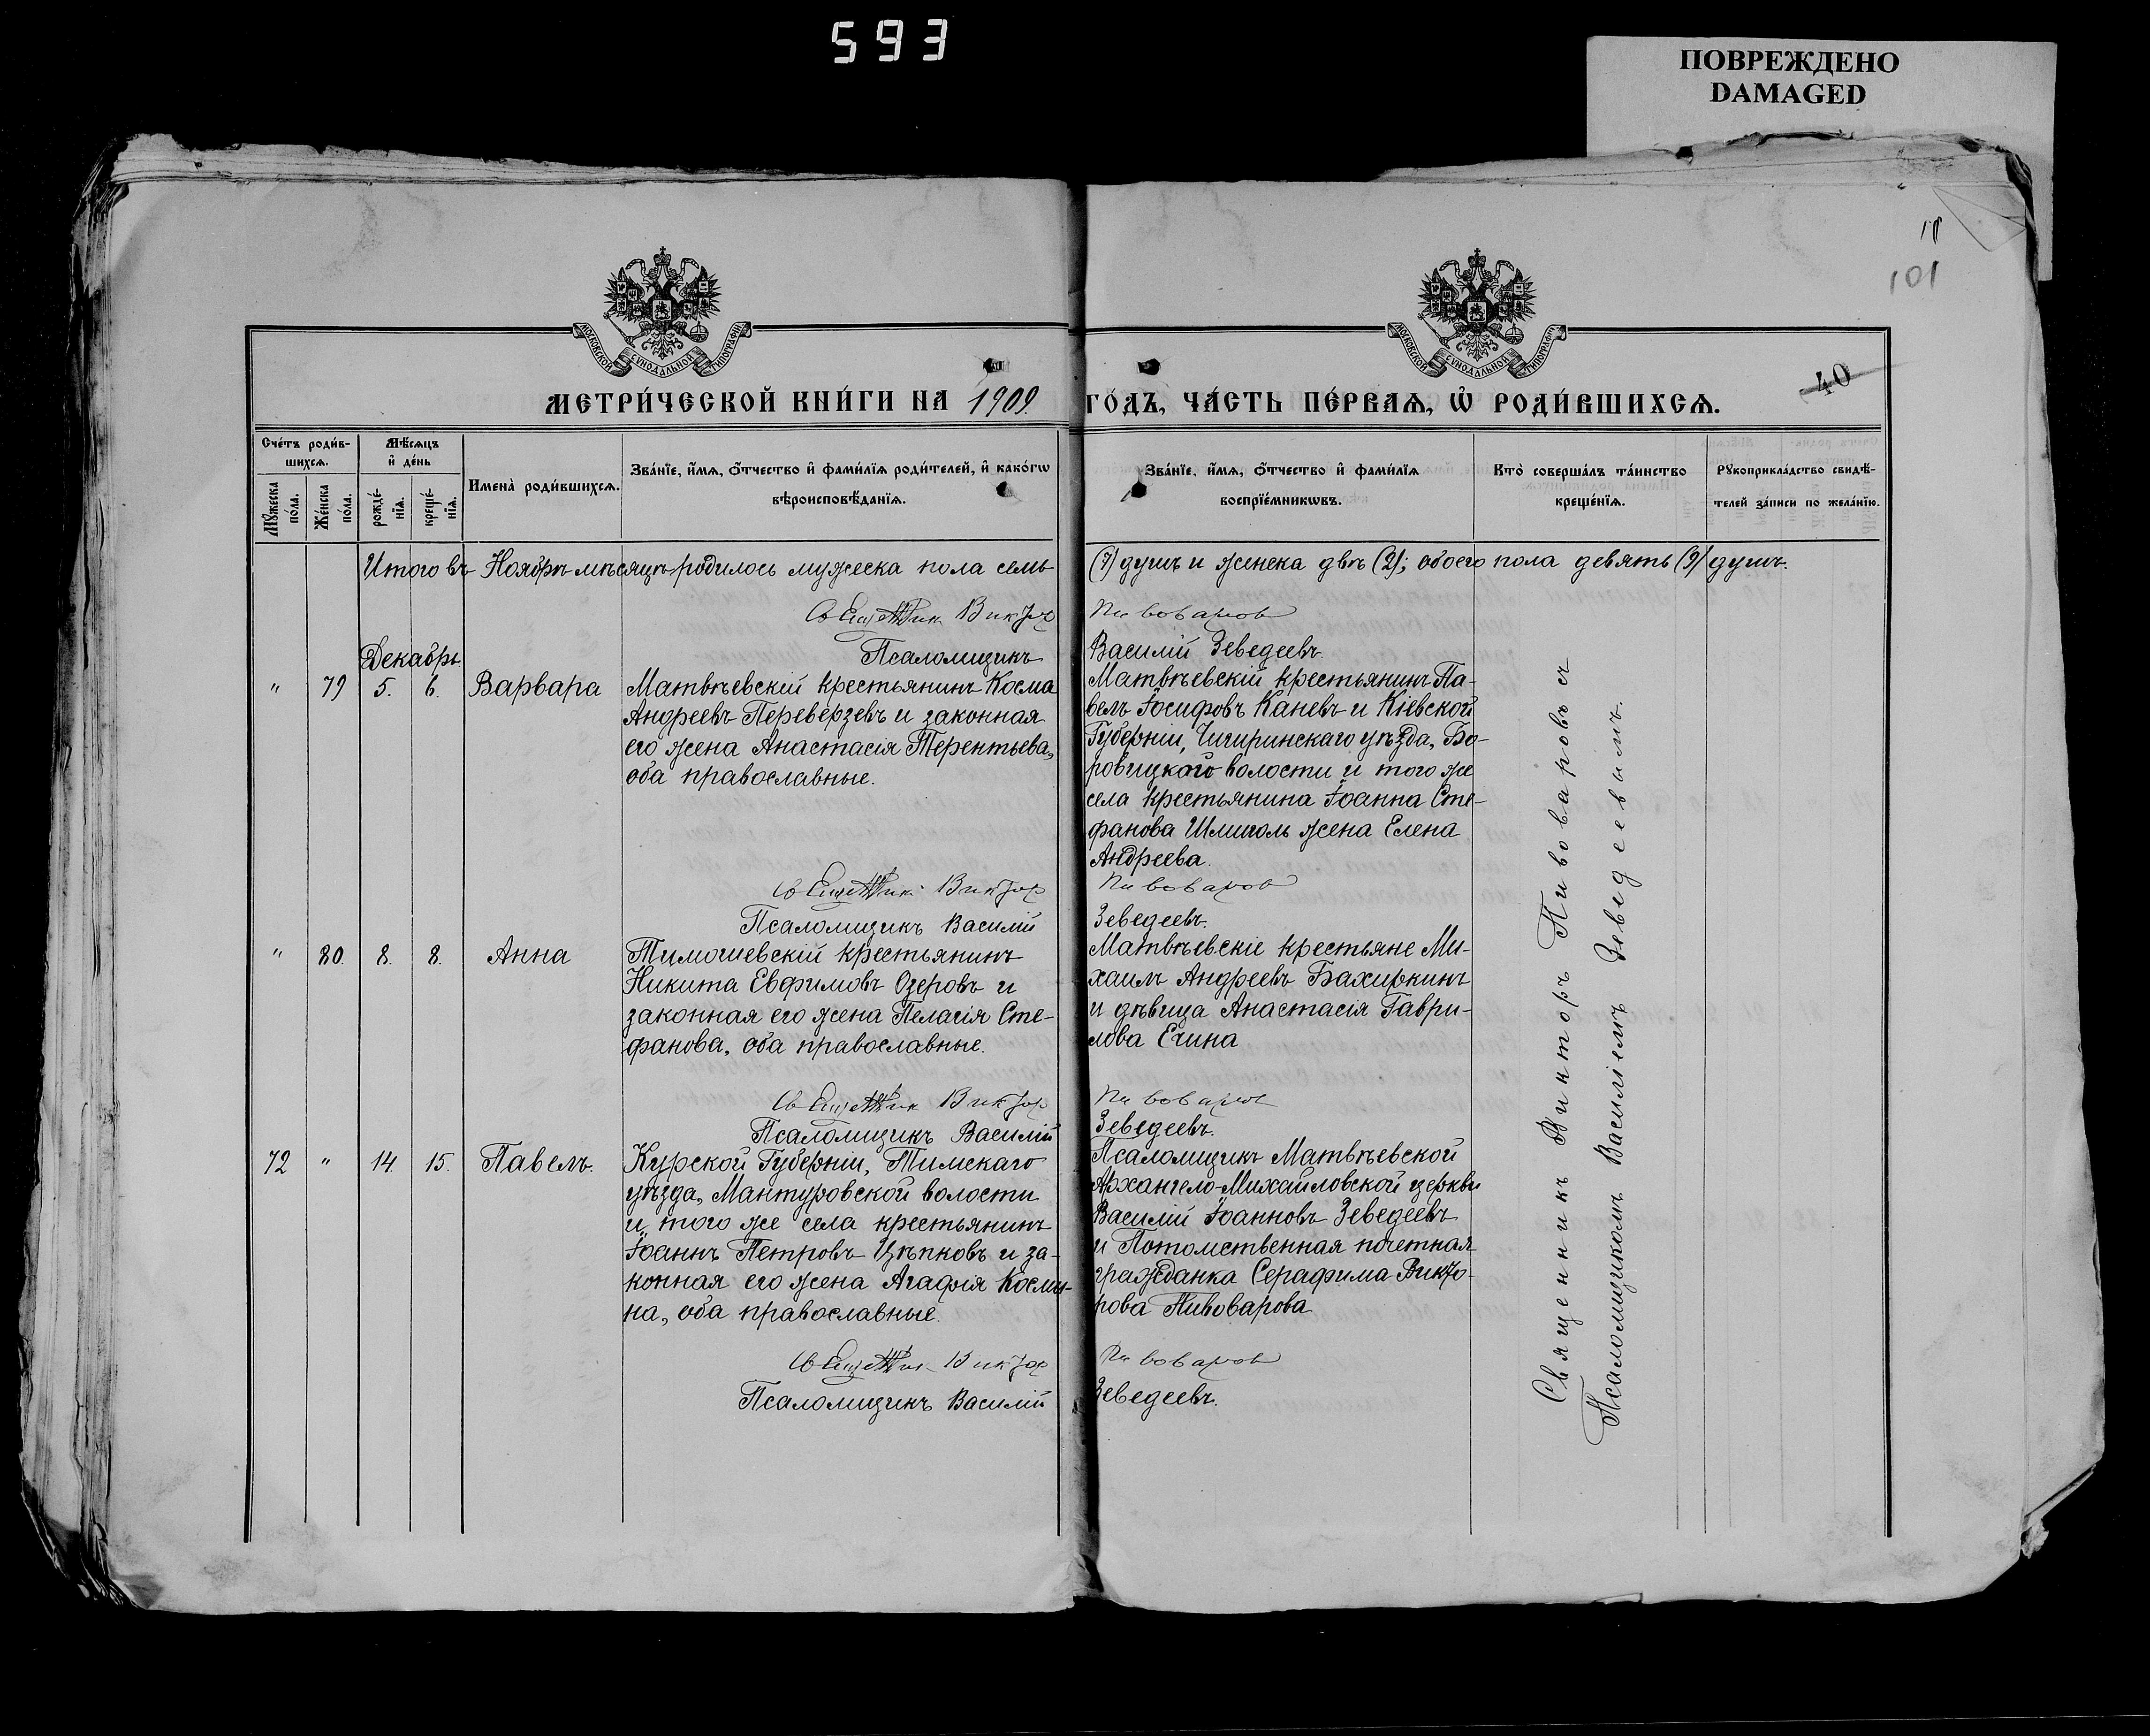 593
ПОВРЕЖДЕНО
DAMAGED
101
40
МОСКОВСКОЙ СѴНОДАЛЬНОЙ ТИПОГРАФІИ
МОСКОВСКОЙ СѴНОДАЛЬНОЙ ТИПОГРАФІИ
МЕТРИ́ЧЕСКОЙ КНИ́ГИ НА 1909 ГО́ДЪ, ЧА́СТЬ ПЕ́РВАѦ, Ѡ҆ РОДИ́ВШИХСѦ.
Сче́тъ роди́в-
шихсѧ.
Мѣ́сѧцъ
и҆ де́нь
Мꙋ́жеска
по́ла.
Же́нска
по́ла.
рожде́-
нїѧ.
креще́-
нїѧ.
Имена̀ роди́вшихсѧ.
Зва́нїе, и҆́мѧ, ѻ҆́тчество и҆ фами́лїѧ роди́телей, и҆ како́гѡ
вѣроисповѣ́данїѧ.
Зва́нїе, и҆́мѧ, ѻ҆́тчество и҆ фами́лїѧ
воспрїе́мникѡвъ.
Кто̀ соверша́лъ та́инство
креще́нїѧ.
Рꙋкоприкла́дство свидѣ́-
телей за́писи по жела́нїю.
Итого въ Ноябрѣ мѣсяцѣ родилось мужеска пола семь (7) душъ и женска двѣ (2); обоего пола девять (9) душъ.
Священник Виктор Пивоваров
Псаломщикъ Василій Зеведеевъ.
Декабрь.
" 79 5. 6. Варвара
Матвѣевскій крестьянинъ Косма
Андреевъ Переверзевъ и законная
его жена Анастасія Терентьева,
оба православные.
Матвѣевскій крестьянинъ Па-
велъ Іосифовъ Каневъ и Кіевской
Губерніи, Чигиринскаго уѣзда, Бо-
ровицкого волости и того же
села крестьянина Іоанна Сте-
фанова Шлиголь жена Елена
Андреева.
Священник Виктор Пивоваров
Псаломщикъ Василій Зеведеевъ.
" 80. 8. 8. Анна
Тимошевскій крестьянинъ
Никита Евфимовъ Озеровъ и
законная его жена Пелагія Сте-
фанова, оба православные.
Матвѣевскіе крестьяне Ми-
хаилъ Андреевъ Бахиркинъ
и дѣвица Анастасія Гаври-
лова Ечина
Священник Виктор Пивоваров
Псаломщикъ Василій Зеведеевъ.
72 " 14 15. Павелъ.
Курской Губерніи, Тимскаго
уѣзда, Мантуровской волости
и того же села крестьянинъ
Іоаннъ Петровъ Цѣпковъ и за-
конная его жена Агафія Косми-
на, оба православные.
Псаломщикъ Матвѣевской
Архангело-Михайловской церкви
Василій Іоанновъ Зеведеевъ
и Потомственная почетная
гражданка Серафима Викто-
рова Пивоварова
Священник Виктор Пивоваров
Псаломщикъ Василій Зеведеевъ.
Священникъ Викторъ Пивоваровъ съ
Псаломщикомъ Василіемъ Зеведеевымъ.